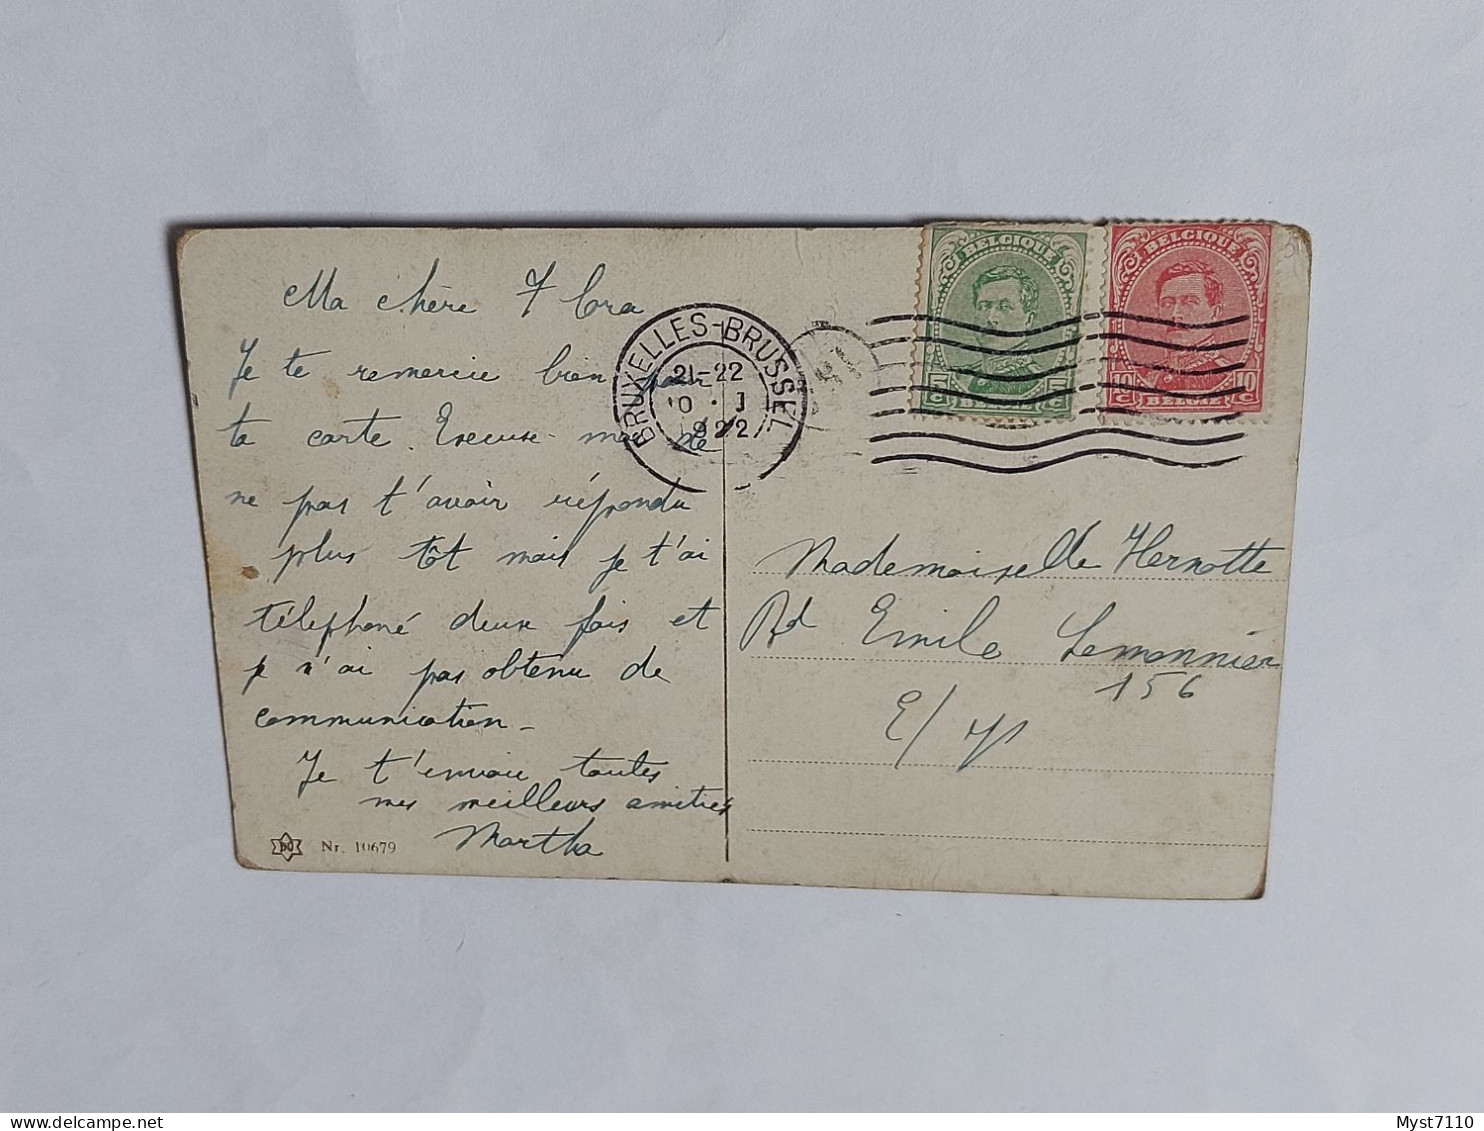 Ma chère Flora
Je te remercie bien pour
ta carte. Excuse-moi de
ne pas t'avoir répondu
plus tôt mais je t'ai
téléphoné deux fois et
je n'ai pas obtenu de
communication_
Je t'envoie toutes
mes meilleurs amitiés
Martha
Nr. 10679
BRUXELLES-BRUSSEL
21-22
10 . I
1922
BELGIQUE
5c 5c
BELGIË
BELGIQUE
10c 10c
BELGIË
Mademoiselle Hernotte
Bd Emile Lemonnier
156
E/V
Myst7110